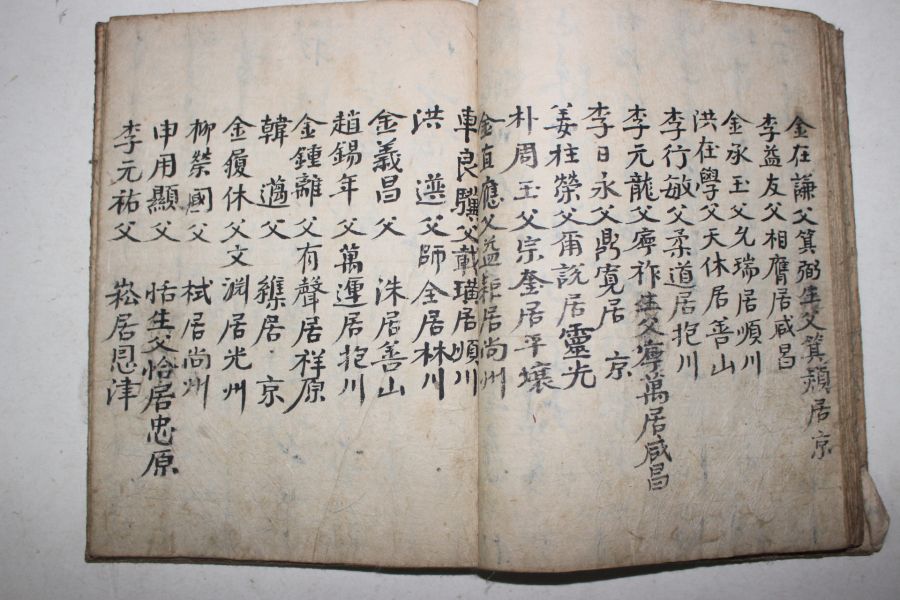 金在謙父箕弼生父箕頫居京
李益友父相膺居咸昌
金承玉父允瑞居順川
洪在學父天休居善山
李行敏父柔道居抱川
李元龍父寧祚生父寧萬居咸昌
李日永父鼎寬居京
姜柱榮父爾說居靈光
朴周玉父宗奎居平壤
金直應父益 居尙州
車良驥父載璜居順川
洪遴父師全居林川
金義昌父洙居善山
趙錫年父萬運居抱川
金鍾離父有聲居祥原
韓 父 居京
金履休父文淵居光州
柳榮國父栻居尙州
申用顯父恬生父恰居忠原
李元祐父崧居恩津